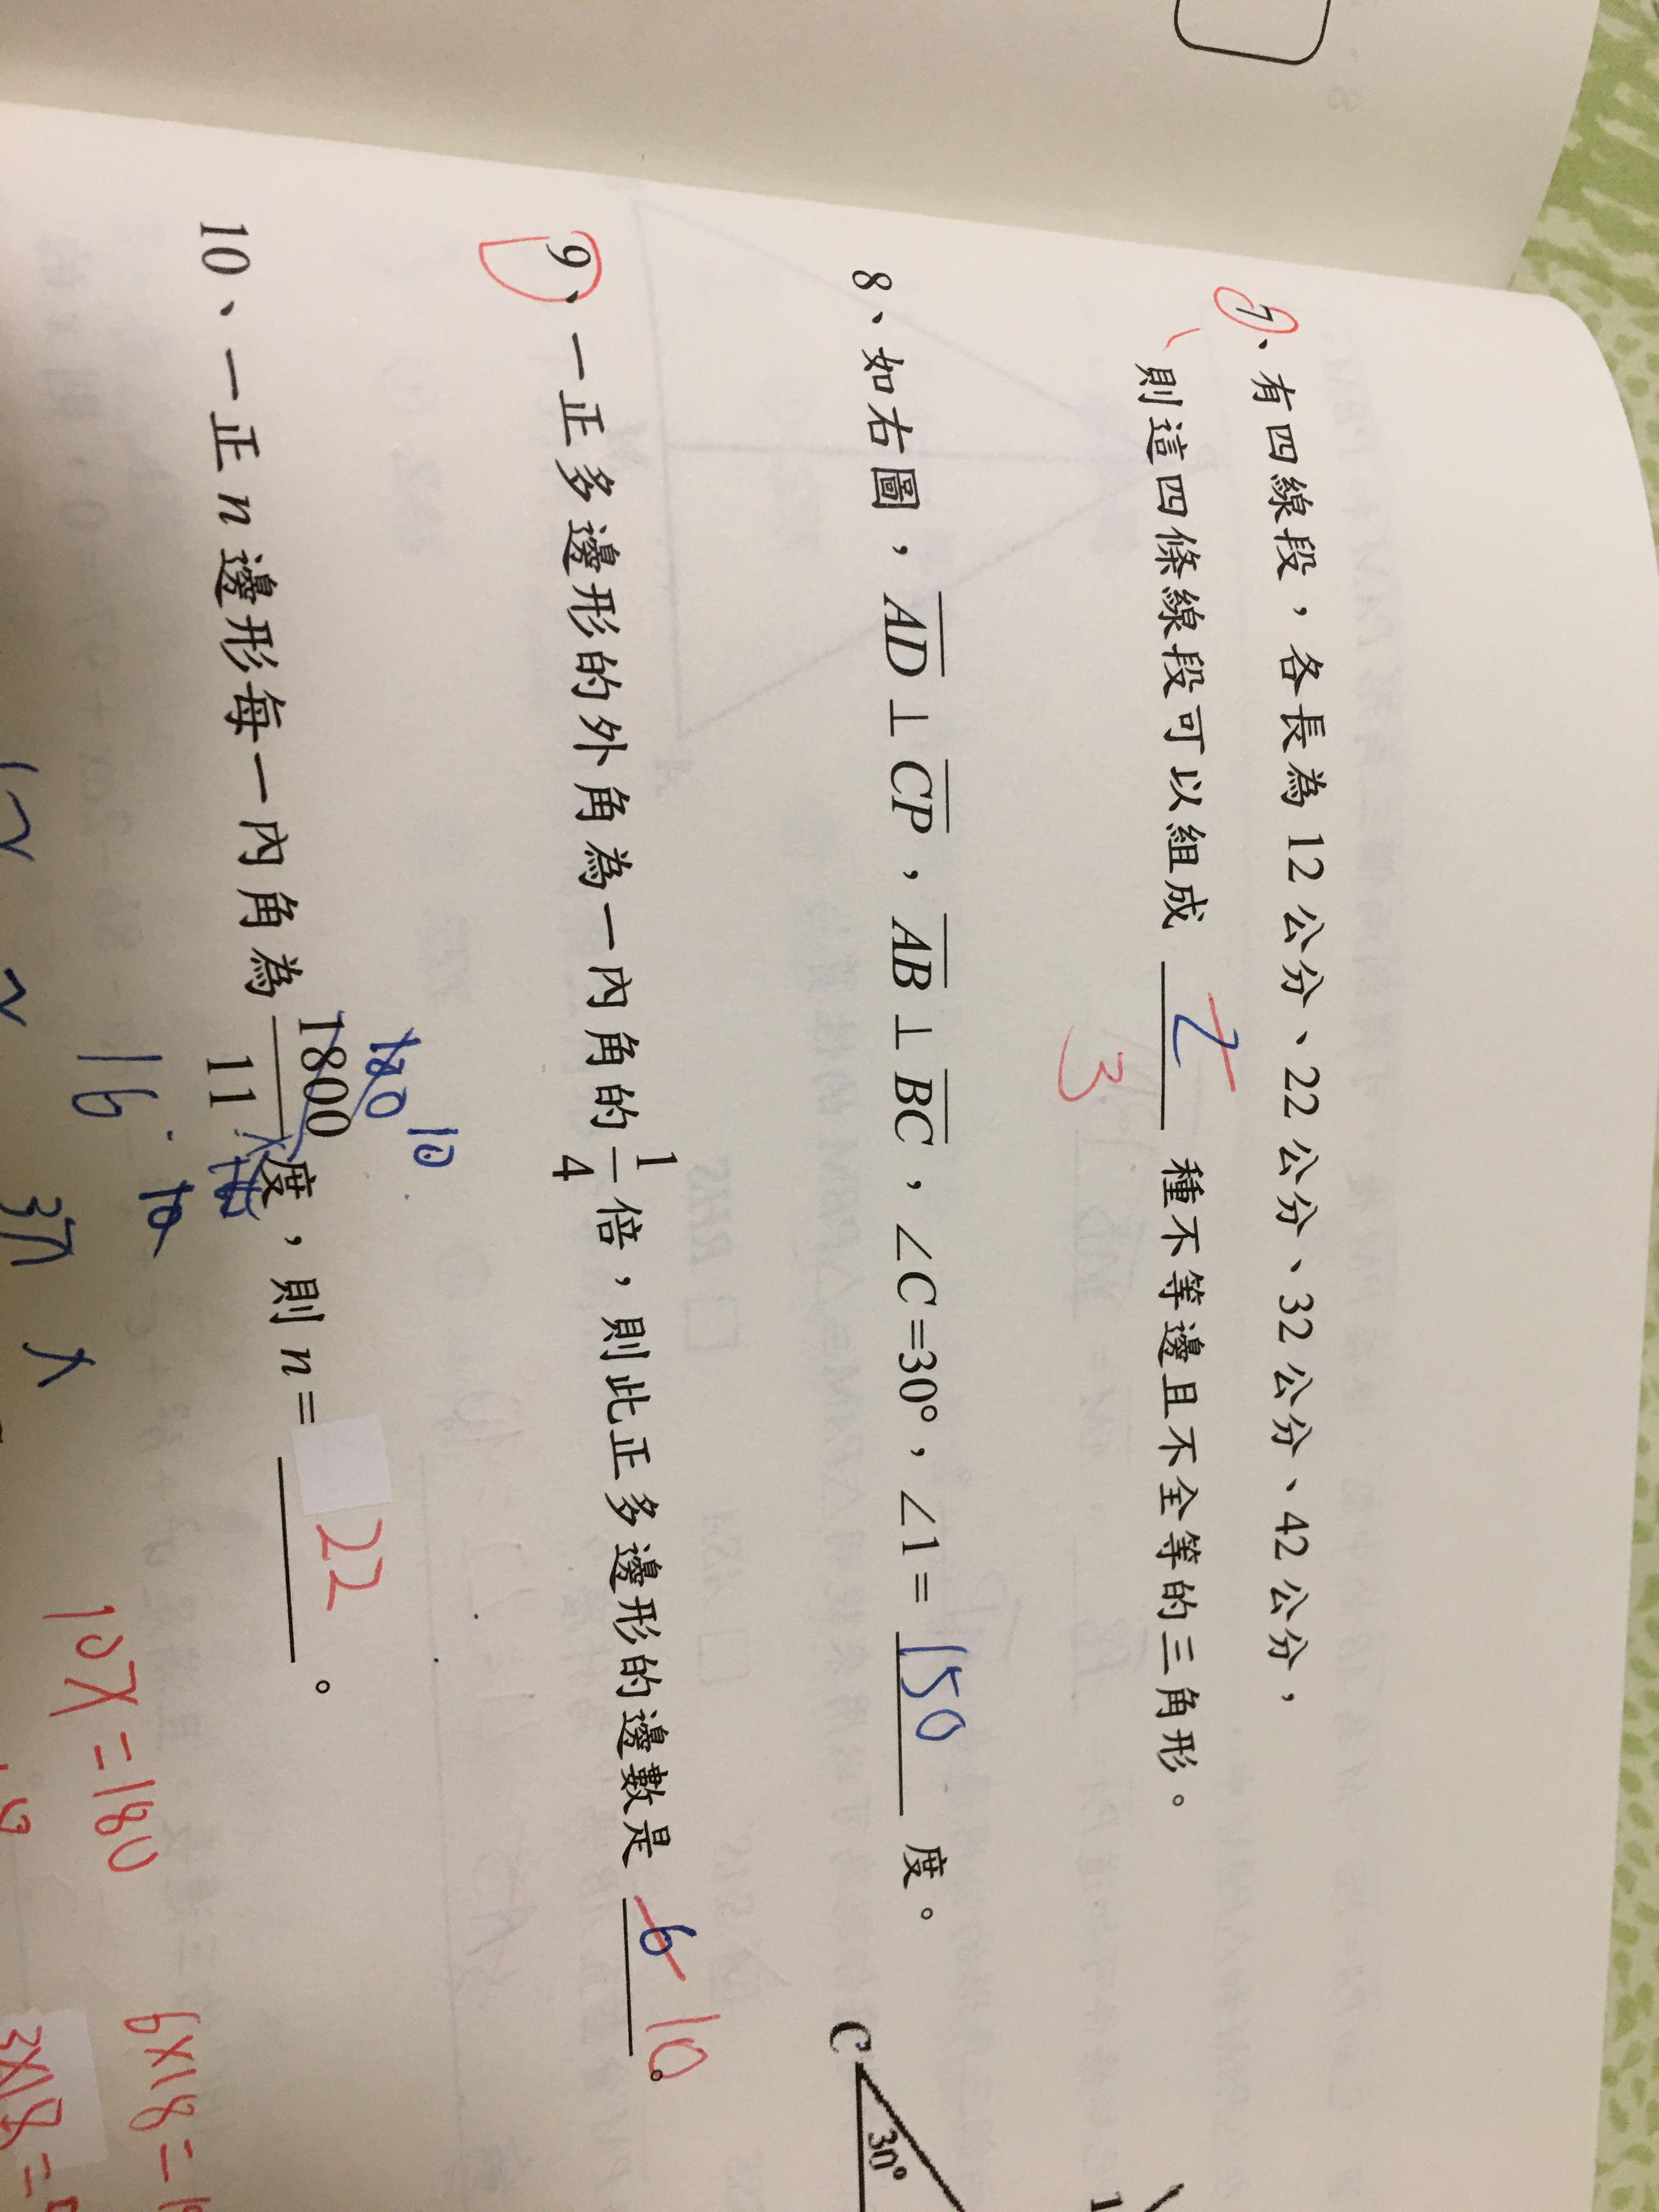 7、有四線段，各長為 12 公分、22 公分、32 公分、42 公分，
則這四條線段可以組成 2 3 種不等邊且不全等的三角形。
8、如右圖，AD⊥CP，AB⊥BC，∠C=30°，∠1= 150 度。
C 30°
1
9、一正多邊形的外角為一內角的 1/4 倍，則此正多邊形的邊數是 6 10。
180 10
10、一正 n 邊形每一內角為 1800/11 度，則 n= 22 。
16. 10
10x=180
6×18=1
3×18=